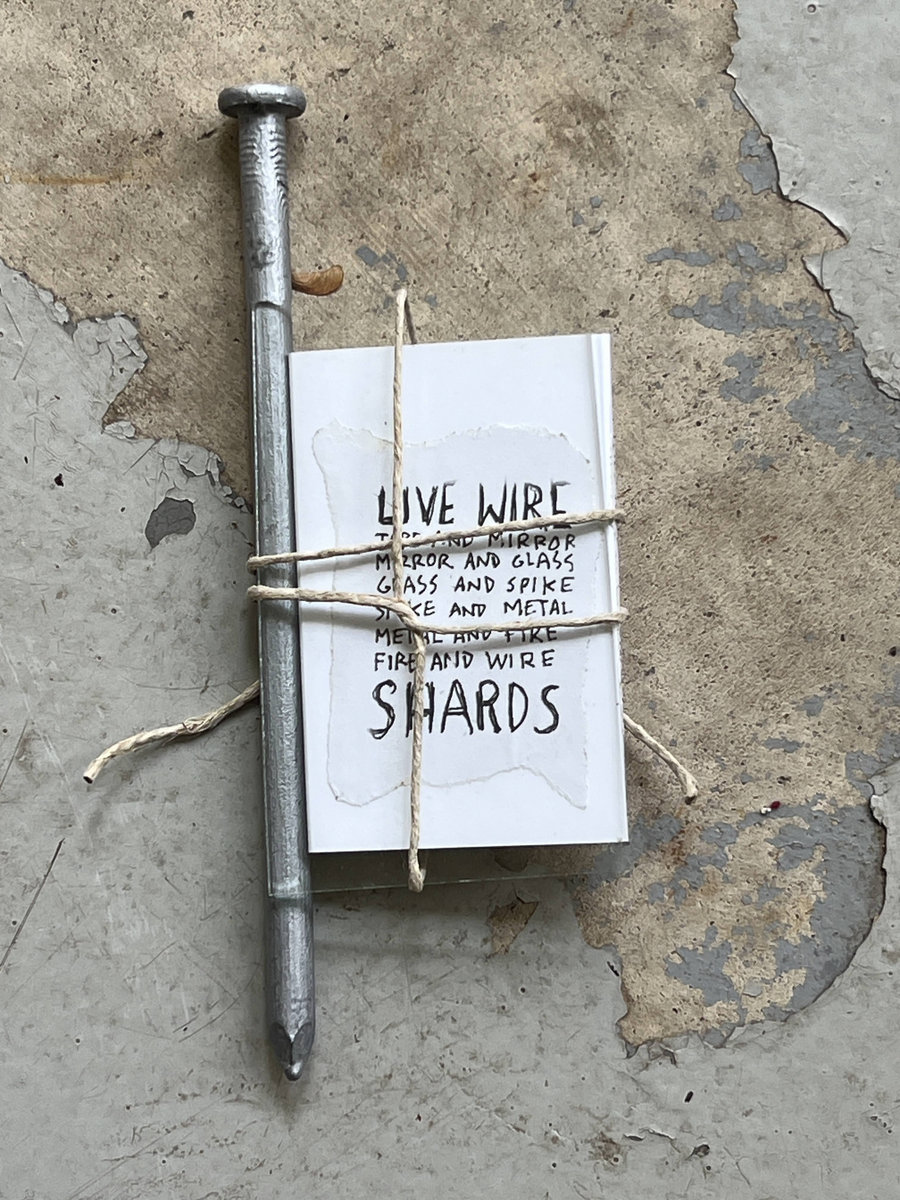 LIVE WIRE
AND MIRROR
MIRROR AND GLASS
GLASS AND SPIKE
SPIKE AND METAL
METAL AND FIRE
FIRE AND WIRE
SHARDS